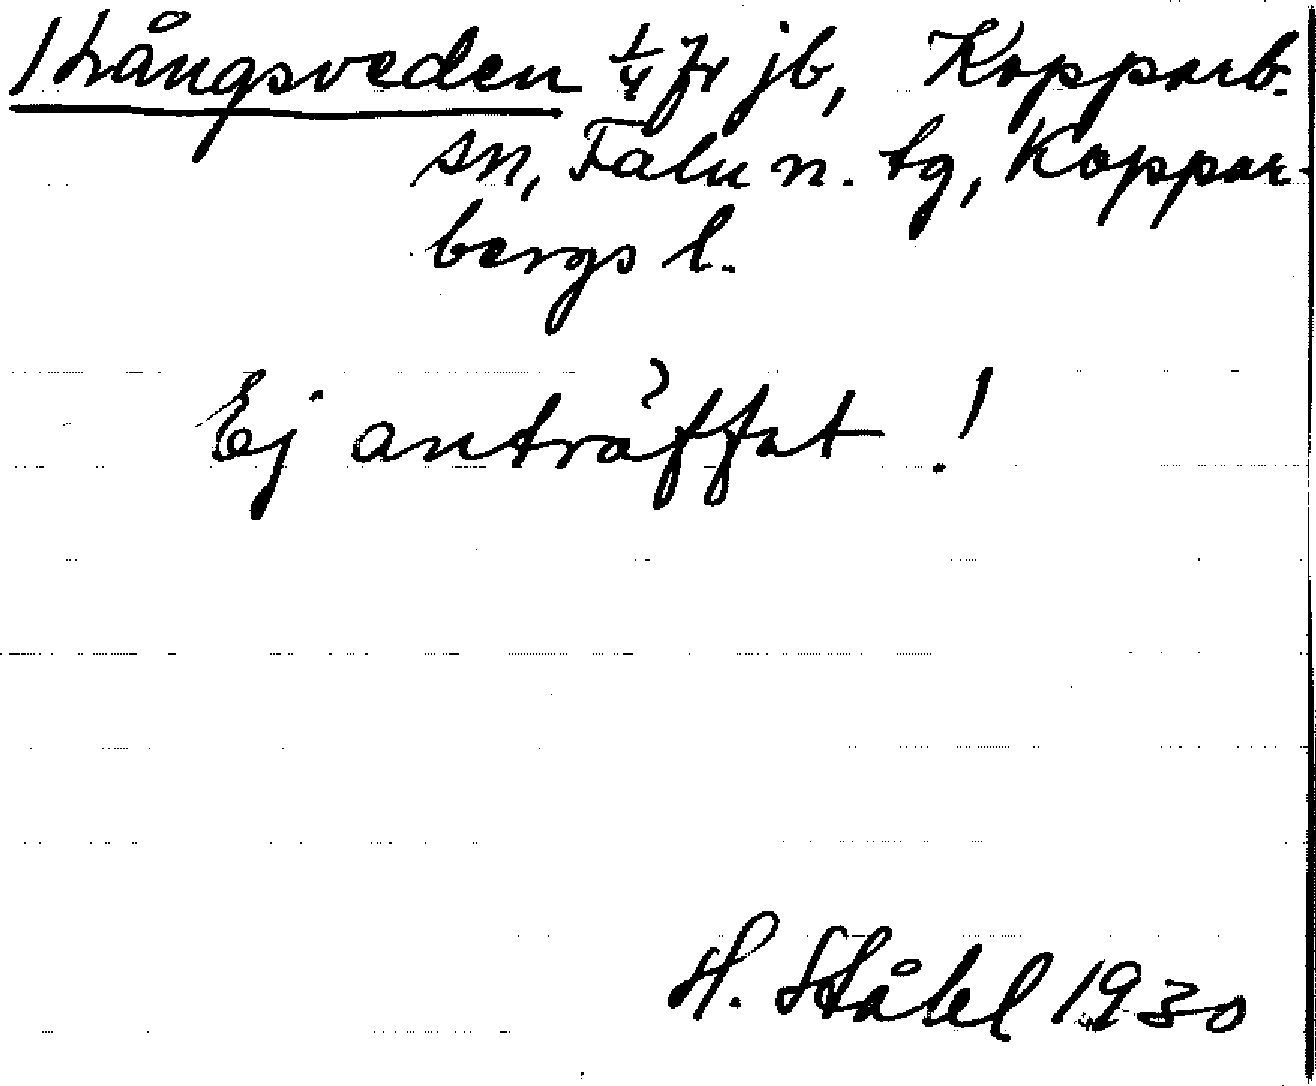 1 Långsveden 1/4 fr jb, Kopparb.
sn, Falu n. tg, Koppar-
bergs l.
Ej anträffat !
H. Ståhl 1930